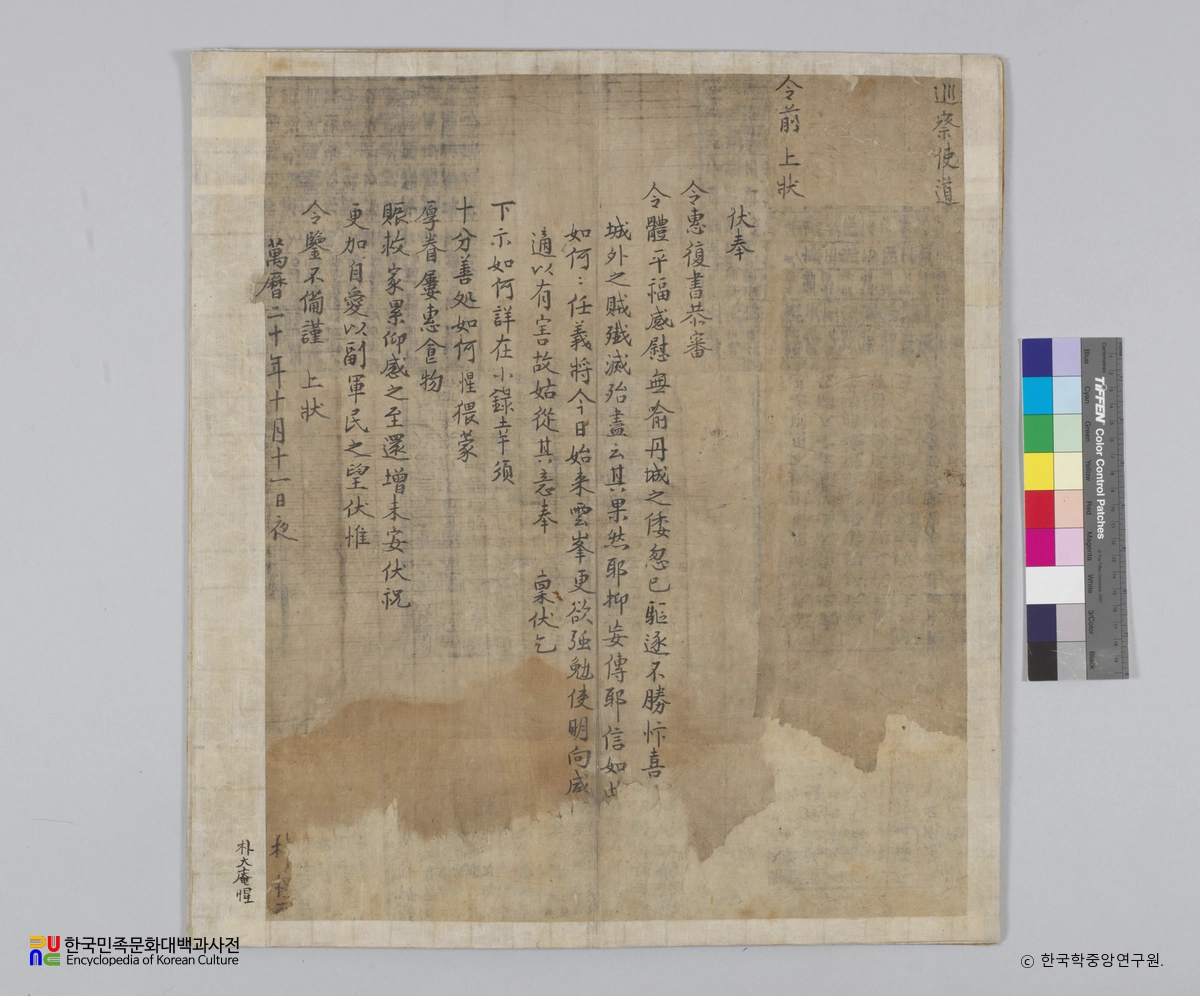 巡察使道
令前 上狀
伏奉
令惠復書恭審
令體平福感慰無喻丹城之倭忽已驅逐不勝忭喜
城外之賊殲滅殆盡云其果然耶抑妄傳耶信如此
如何：任義將今日始來雲峯更欲强勉使明向咸
適以有害故姑從其意奉 稟伏乞
下示如何詳在小錄幸須
十分善処如何惺猥蒙
厚眷屢惠食物
賑救家累仰感之至還增未安伏祝
更加自愛以副軍民之望伏惟
令鑒不備謹 上狀
萬曆二十年十月十一日夜
朴
朴大庵惺
한국민족문화대백과사전
Encyclopedia of Korean Culture
ⓒ 한국학중앙연구원.
TIFFEN Color Control Patches
Blue
Cyan
Green
Yellow
Red
Magenta
White
3/Color
Black